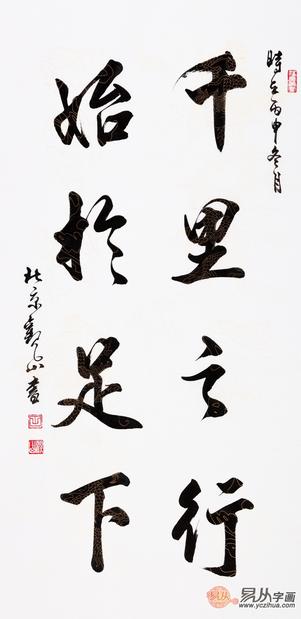 時在丙申冬月
千里之行
始於足下
北京觀山書
易从字画
www.yczihua.com